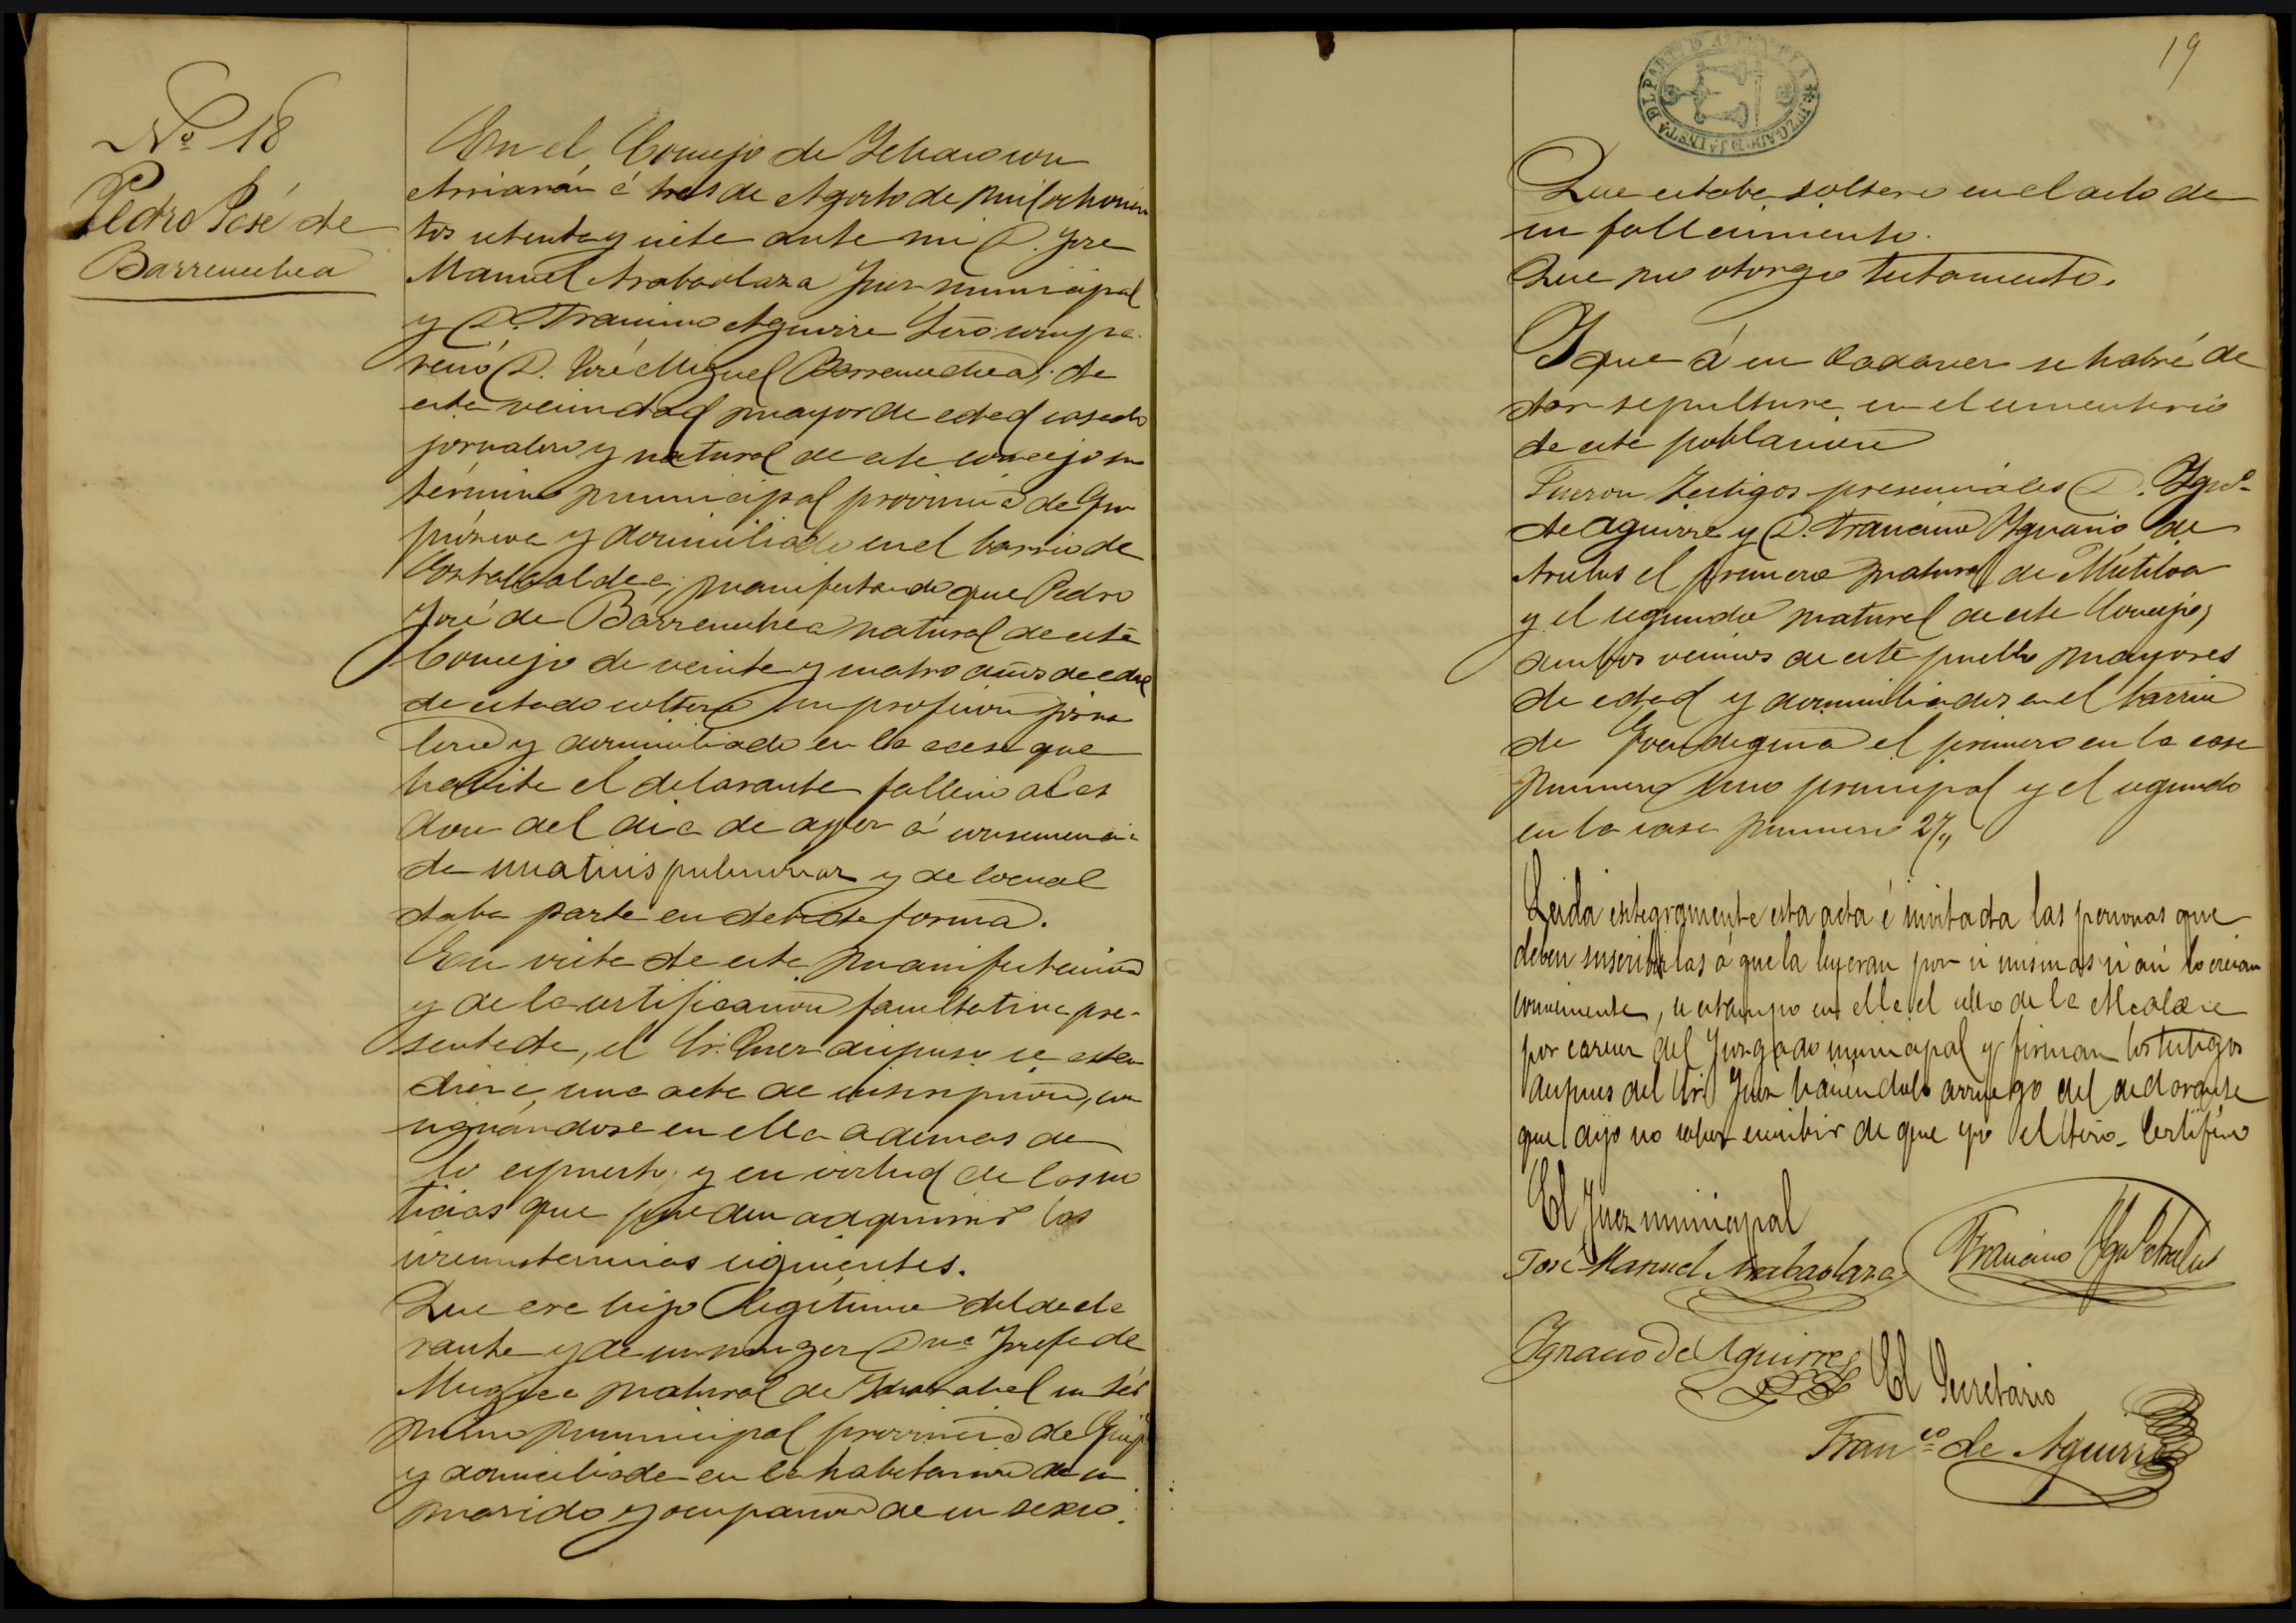 Nº 18
Pedro José de
Barrenechea
En el Concejo de Ichaso con
Arriarán á tres de Agosto de mil ochocien
tos setenta y siete ante mi D. José
Manuel Arabaolaza Juez municipal
y D. Francisco Aguirre Srio. compa
reció D. José Miguel Barrenechea, de
esta vecindad mayor de edad casado
jornalero y natural de este concejo su
término municipal provincia de Gui
púzcoa y domiciliado en el barrio de
manifestando que Pedro
José de Barrenechea natural de este
Concejo de veinte y cuatro años de edad
de estado soltero su profesion jorna
lero y domiciliado en la casa que
habita el declarante falleció a las
doce del dia de ayer á consecuencia
de una tisis pulmonar y de lo cual
daba parte en debida forma.
En vista de esta manifestacion
y de la certificacion facultativa pre-
sentada, el Sr. Juez dispuso se esten
diera una acta de inscripcion, con
signándose en ella ademas de
lo espuesto, y en virtud de las no
ticias que pueden adquirir las
circunstancias siguientes.
Que era hijo legítimo del decla
rante y de su muger Dña Josefa de
Mugica natural de su tér
mino municipal provincia de Guip
y domiciliada en la habitacion de su
marido y ocupacion de su sexo.
19
JUZGADO DE 1ª INSTA DEL PARTI D AZPEITIA
Que estaba soltero en el acto de
su fallecimiento.
Que no otorgó testamento.
Y que á su cadaver se habrá de
dar sepultura en el cementerio
de esta poblacion
Fueron testigos presenciales D. Ignº
de Aguirre y D. Francisco Ygnacio de
el primero natural de Mutiloa
y el segundo natural de este Concejo,
ambos vecinos de este pueblo mayores
de edad y domiciliados en el barrio
de el primero en la casa
numero uno principal y el segundo
en la casa numero 27,,
Leida integramente esta acta é invitada las personas que
deben suscribirlas á que la leyeran por si mismas si asi lo creian
conveniente, se estampo en ella el sello de la Alcaldia
por carecer del Juzgado municipal y firman los testigos
despues del Sr. Juez haciendolo arruego del declarante
que dijo no saber escribir de que yo el Srio. Certifico
El Juez municipal
José Manuel Arabaolaza Francisco Ygnº
Ygnacio de Aguirre
El Secretario
Franco de Aguirre